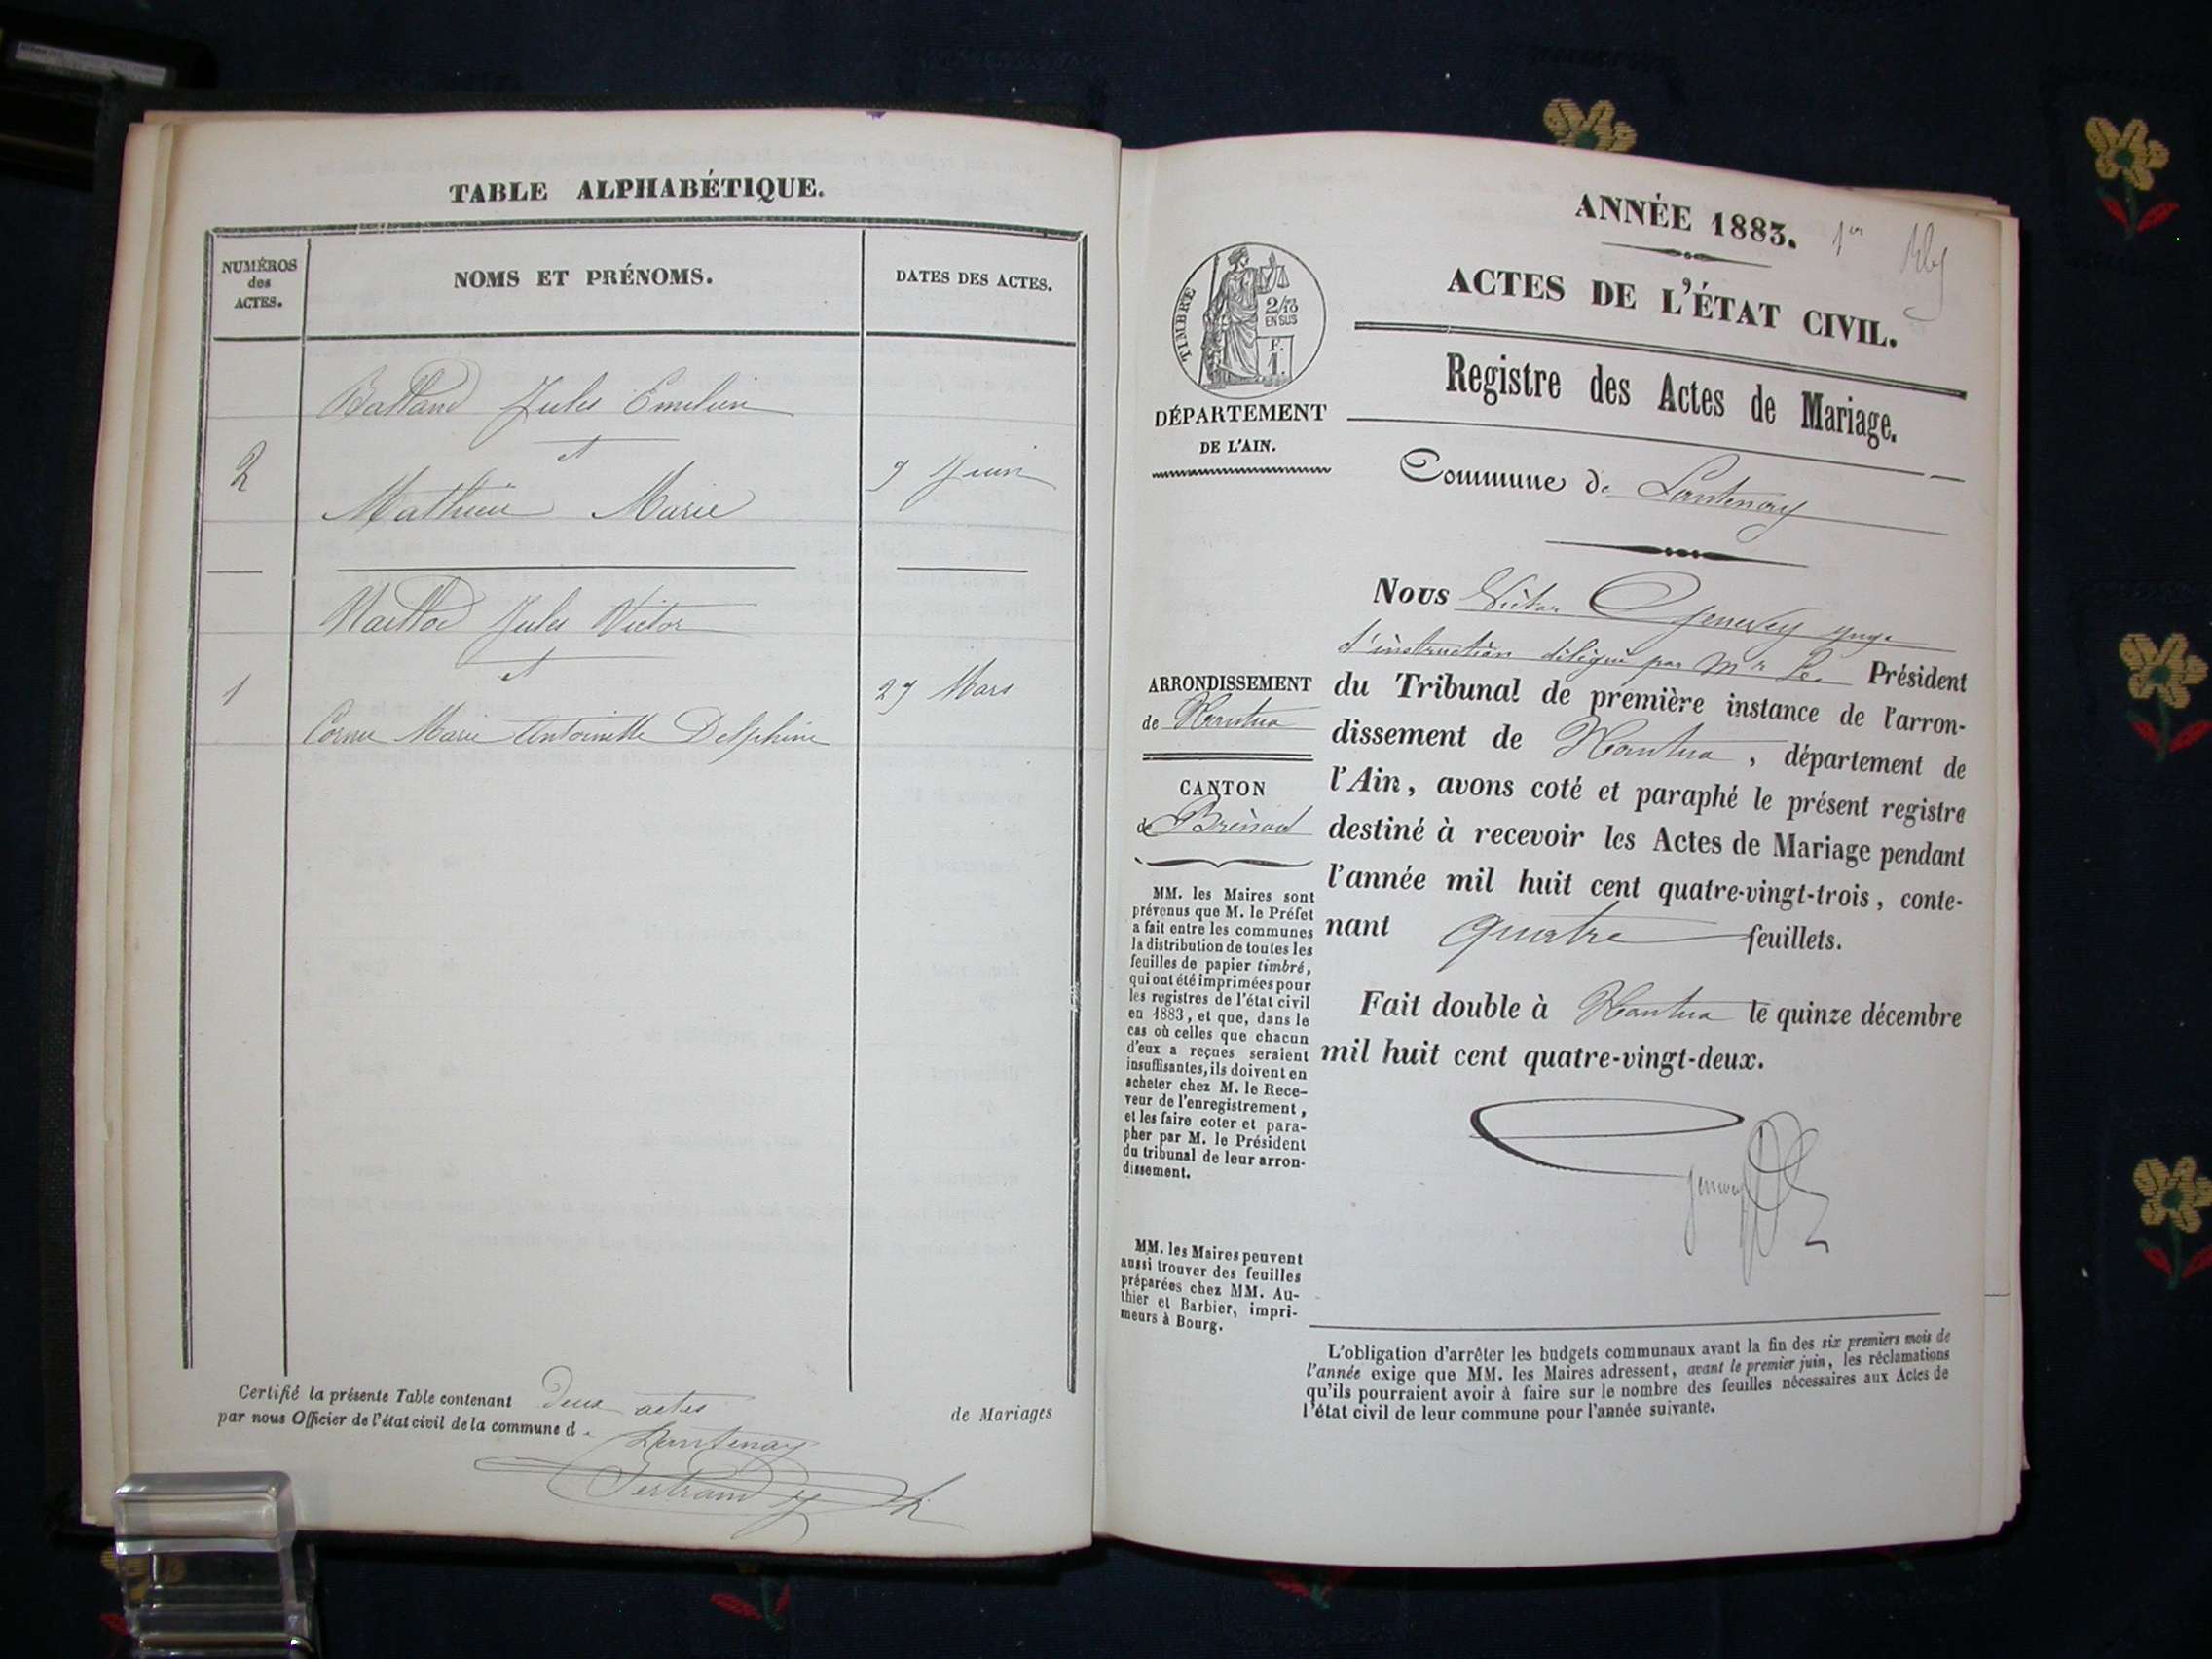 TABLE ALPHABÉTIQUE.
NUMÉROS
des
ACTES.
NOMS ET PRÉNOMS.
DATES DES ACTES.
Balland Jules Emelien
et
2
9 Juin
Mathieu Marie
Jules Victor
et
1
29 Mars
Cornu Marie Antoinette Delphine
Certifié la présente Table contenant deux actes de Mariages
par nous Officier de l'état civil de la commune d. Lantenay
ANNÉE 1883.
1er
ACTES DE L'ÉTAT CIVIL.
TIMBRE
2/10
EN SUS
F.
1.
Registre des Actes de Mariage.
DÉPARTEMENT
DE L'AIN.
Commune de Lantenay
Nous Victor Genevey Juge
d'instruction délégué par Mr Le Président
du Tribunal de première instance de l'arron-
dissement de Nantua, département de
l'Ain, avons coté et paraphé le présent registre
destiné à recevoir les Actes de Mariage pendant
l'année mil huit cent quatre-vingt-trois, conte-
nant quatre feuillets.
Fait double à Nantua le quinze décembre
mil huit cent quatre-vingt-deux.
Genevey
ARRONDISSEMENT
de Nantua
CANTON
de Brénod
MM. les Maires sont
prévenus que M. le Préfet
a fait entre les communes
la distribution de toutes les
feuilles de papier timbré,
qui ont été imprimées pour
les registres de l'état civil
en 1883, et que, dans le
cas où celles que chacun
d'eux a reçues seraient
insuffisantes, ils doivent en
acheter chez M. le Rece-
veur de l'enregistrement,
et les faire coter et para-
pher par M. le Président
du tribunal de leur arron-
dissement.
MM. les Maires peuvent
aussi trouver des feuilles
préparées chez MM. Au-
thier et Barbier, impri-
meurs à Bourg.
L'obligation d'arrêter les budgets communaux avant la fin des six premiers mois de
l'année exige que MM. les Maires adressent, avant le premier juin, les réclamations
qu'ils pourraient avoir à faire sur le nombre des feuilles nécessaires aux Actes de
l'état civil de leur commune pour l'année suivante.